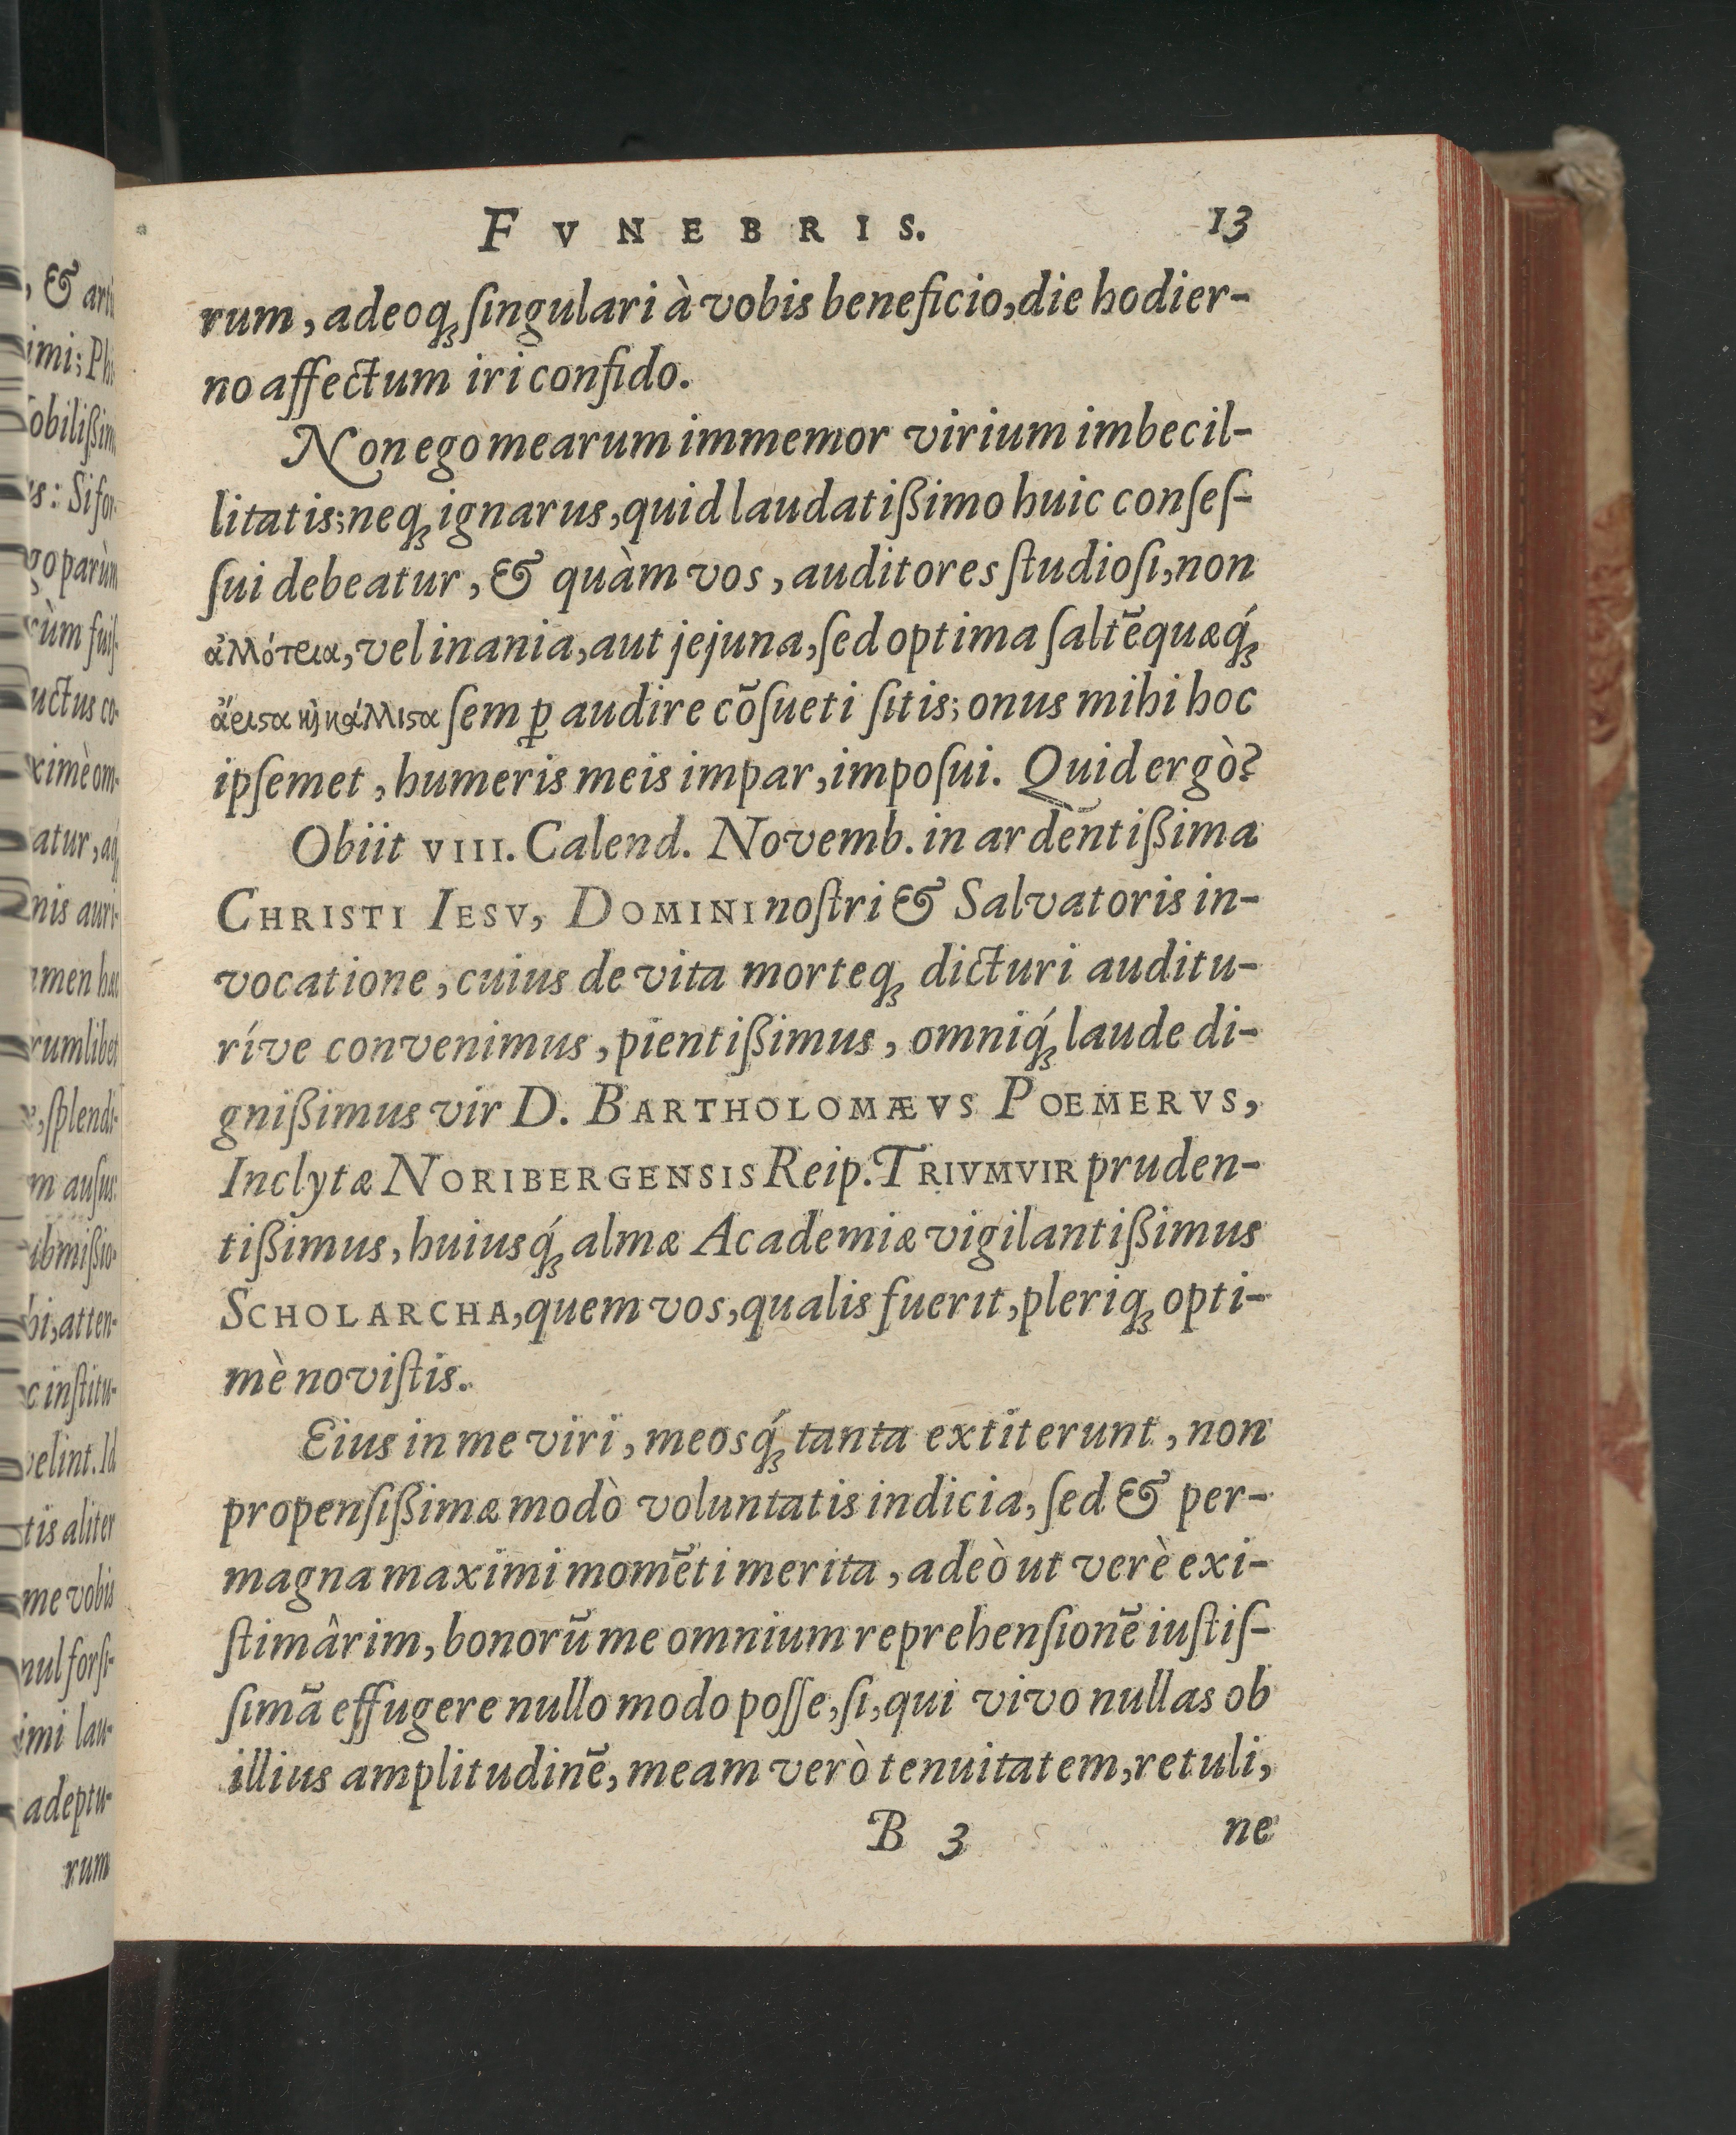 FVNEBRIS. 13
rum, adeoq́ꝫ ſingulari à vobis beneficio, die hodier-
no affectum iri confido.
Non ego mearum immemor virium imbecil-
litatis; neqꝫ ignarus, quid laudatißimo huic conſeſ-
ſui debeatur, & quàm vos, auditores ſtudioſi, non
ἀλλότεια, vel inania, aut jejuna, ſed optima ſaltẽ quæq́ꝫ
ἄειϛα κὶ κάλλιϛα ſemꝑ audire cõſueti ſitis; onus mihi hoc
ipſemet, humeris meis impar, impoſui. Quid ergò?
Obiit VIII. Calend. Novemb. in ardentißima
CHRISTI IESV, DOMINI noſtri & Salvatoris in-
vocatione, cuius de vita morteqꝫ dicturi auditu-
ríve convenimus, pientißimus, omniq́ꝫ laude di-
gnißimus vir D. BARTHOLOMÆVS POEMERVS,
Inclytæ NORIBERGENSIS Reip. TRIVMVIR pruden-
tißimus, huiusq́ꝫ almæ Academiæ vigilantißimus
SCHOLARCHA, quem vos, qualis fuerit, pleriqꝫ opti-
mè noviſtis.
Eius in me viri, meosq́ꝫ tanta extiterunt, non
propenſißimæ modò voluntatis indicia, ſed & per-
magna maximi momẽti merita, adeò ut verè exi-
ſtimârim, bonorũ me omnium reprehenſionẽ iuſtiſ-
ſimã effugere nullo modo poſſe, ſi, qui vivo nullas ob
illius amplitudinẽ, meam verò tenuitatem, retuli,
B 3 ne